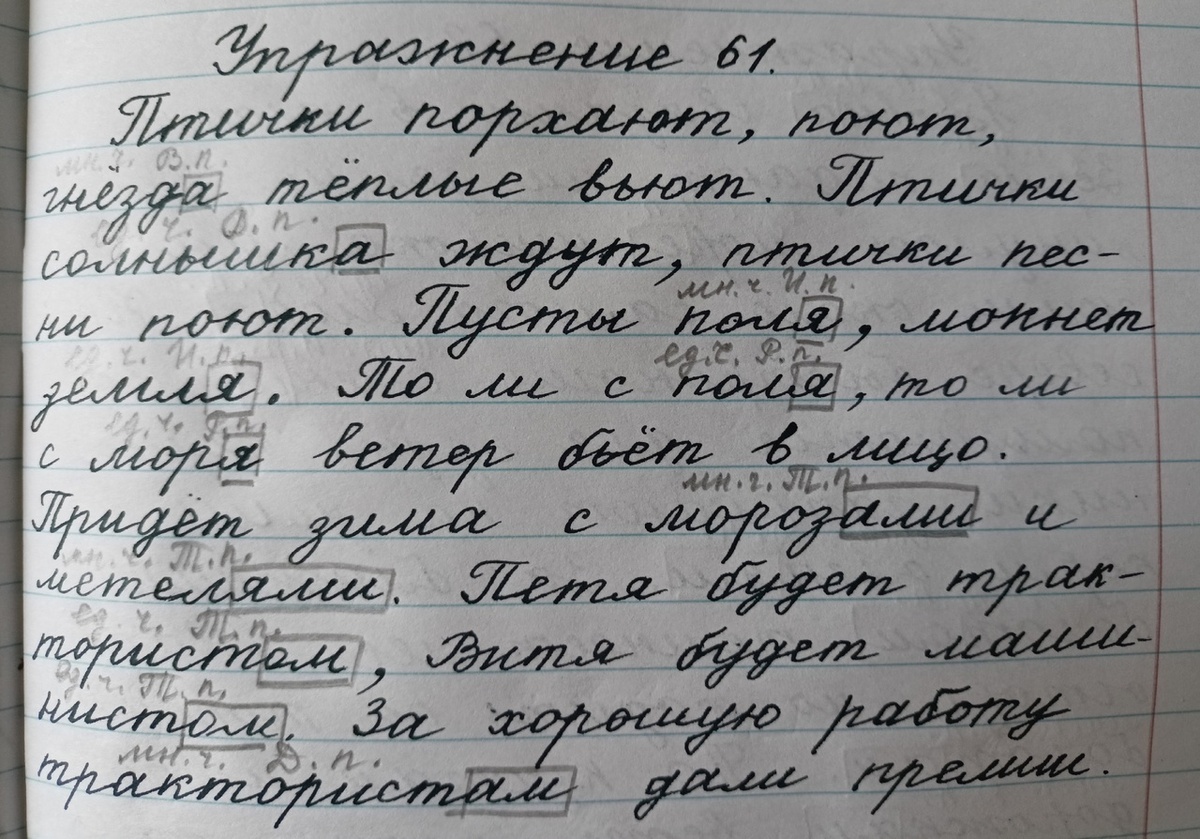 Упражнение 61.
Птички порхают, поют,
мн. ч. В. п.
гнёзда тёплые вьют. Птички
ед. ч. Р. п.
солнышка ждут, птички пес-
мн. ч. И. п.
ни поют. Пусты поля, мокнет
ед. ч. И. п. ед. ч. Р. п.
земля. То ли с поля, то ли
ед. ч. Р. п.
с моря ветер бьёт в лицо.
мн. ч. Т. п.
Придёт зима с морозами и
мн. ч. Т. п.
метелями. Петя будет трак-
ед. ч. Т. п.
тористом, Витя будет маши-
ед. ч. Т. п.
нистом. За хорошую работу
мн. ч. Д. п.
трактористам дали премии.